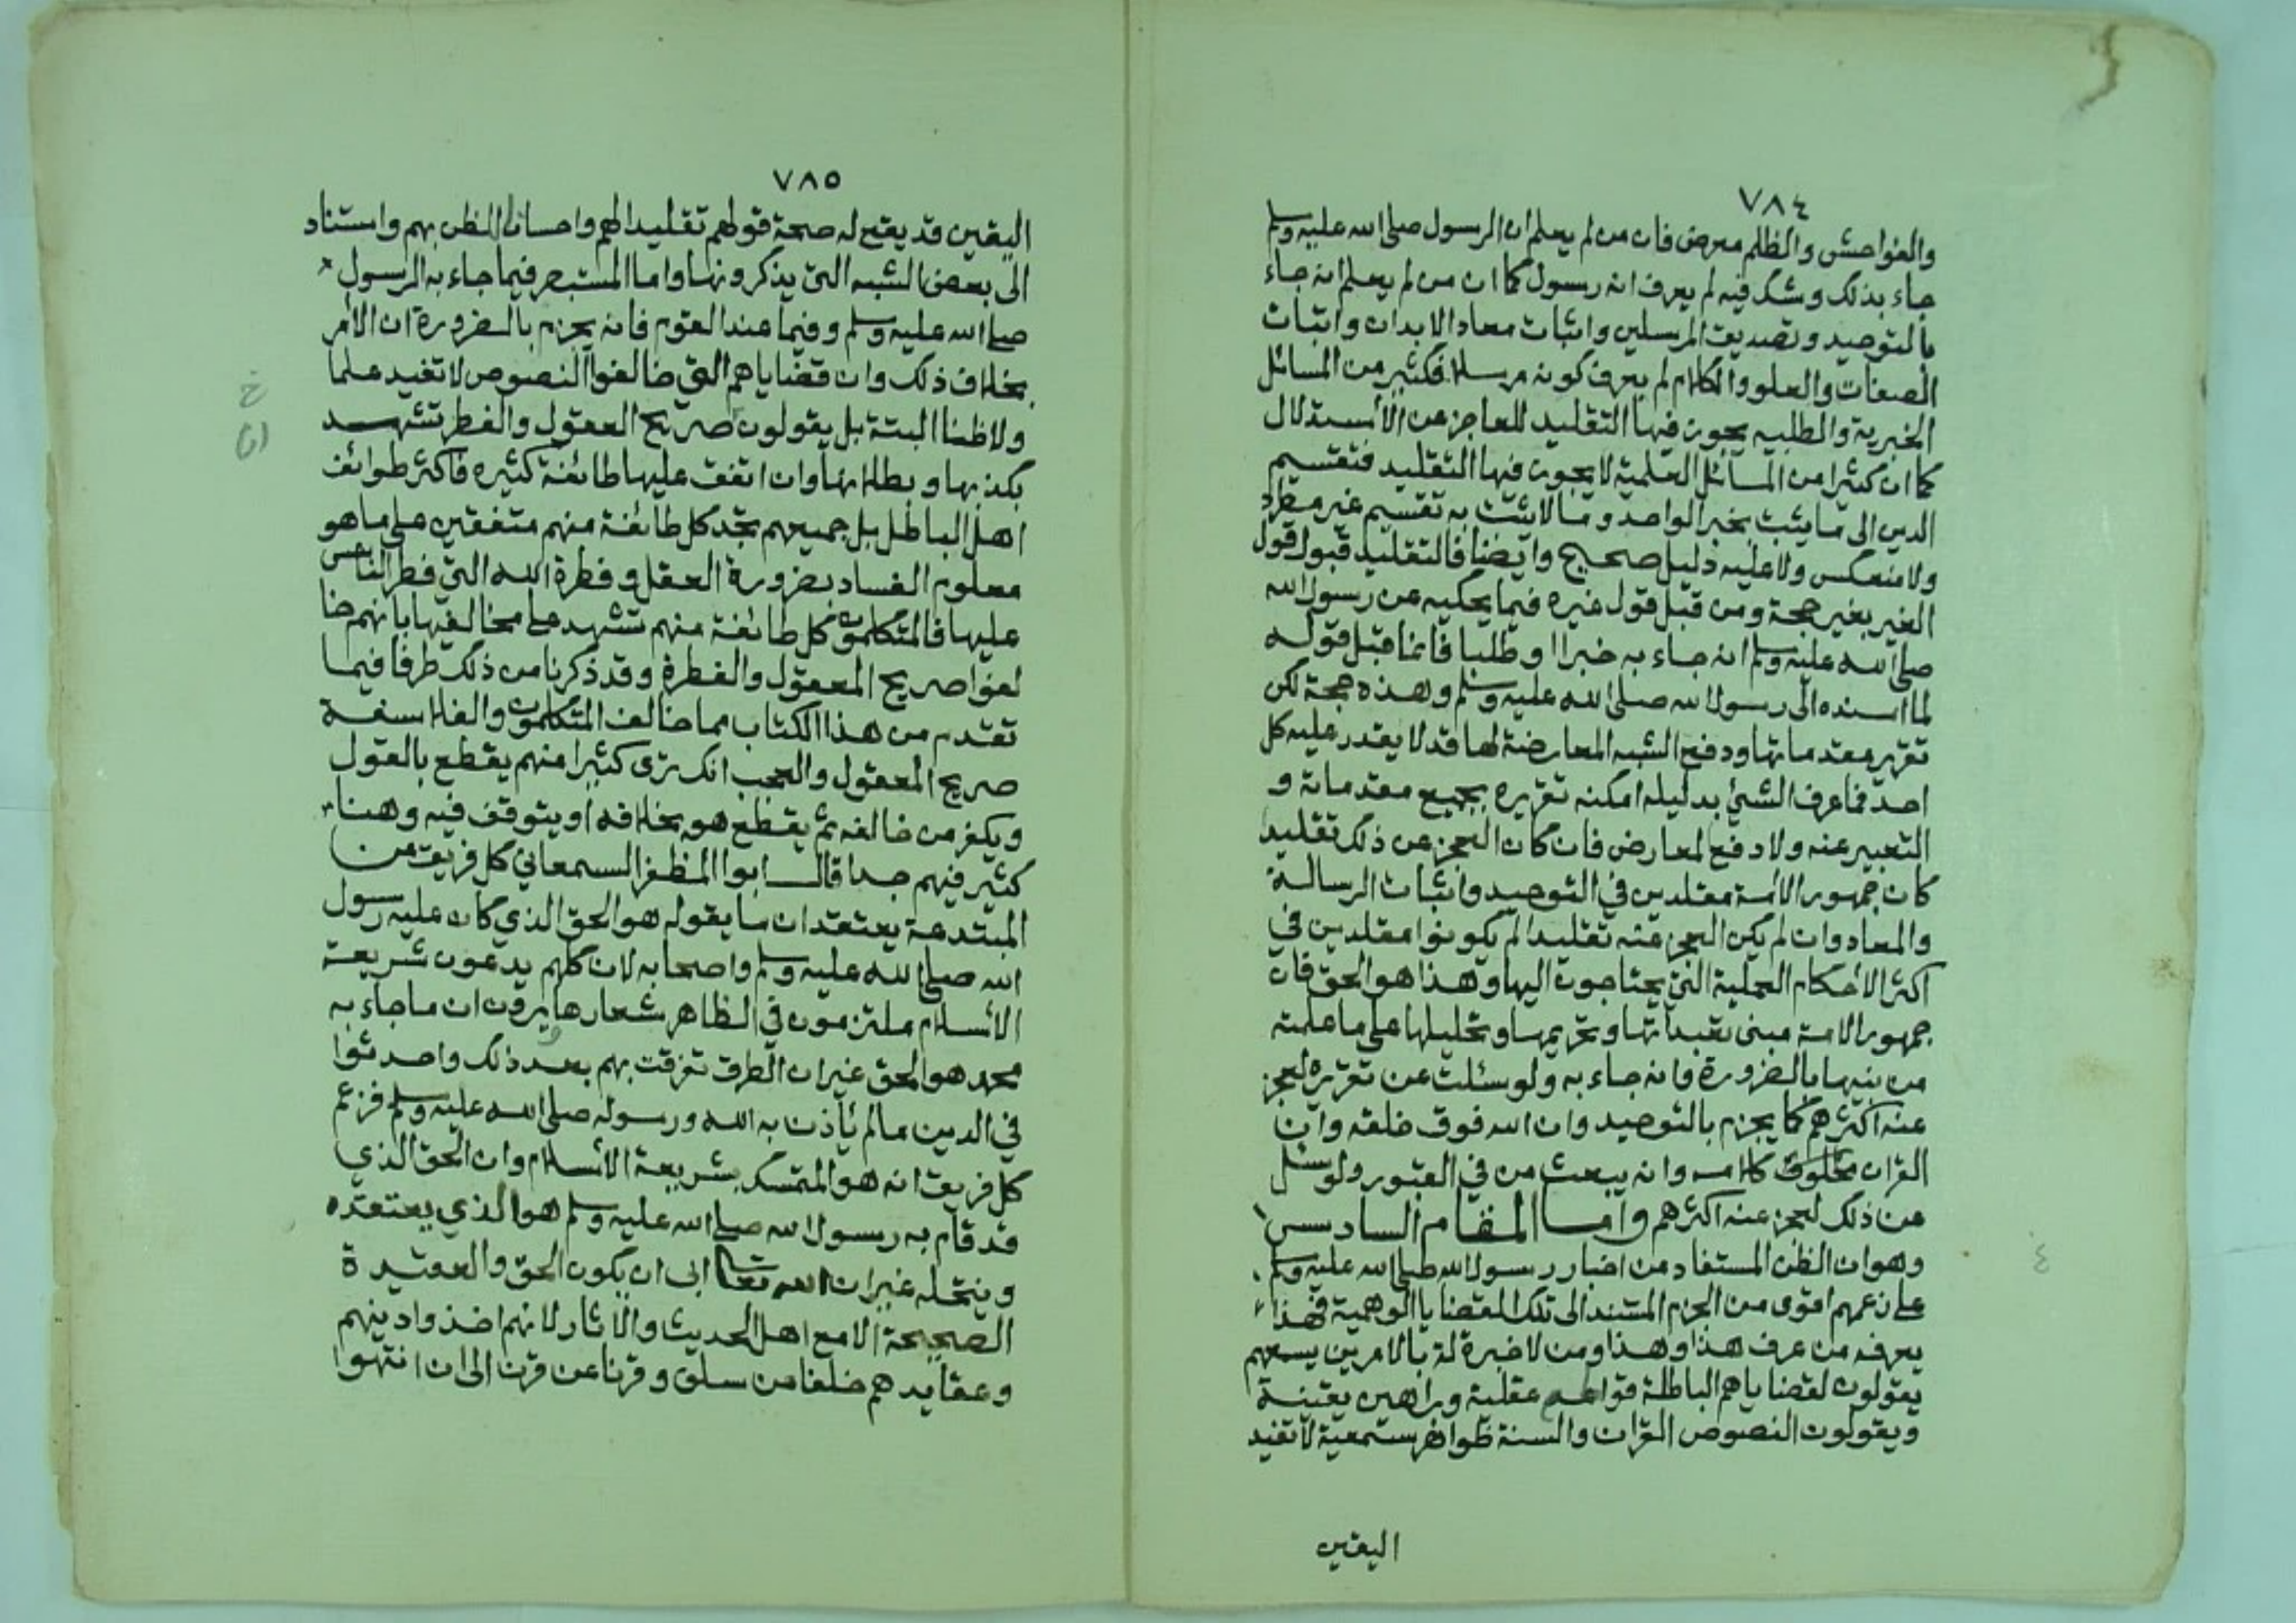 ٧٨٤
والفواحش والظلم معرض فان من لم يعلم ان الرسول صلى الله عليه وسلم
جاء بذلك وشك فيه لم يعرف انه رسول كما ان من لم يعلم انه جاء
بالتوحيد وتصديق المرسلين واثبات معاد الابدان واثبات
الصفات والعلو والكلام لم يعرف كونه مرسلا فكثير من المسائل
الخبرية والطلبيه يجوز فيها التقليد للعاجز عن الأستدلال
كما ان كثيرا من المسائل العلمية لا يجوز فيها التقليد فتقسيم
الدين الى ما يثبت بخبر الواحد وما لا يثبت به تقسيم غير مطرد
ولا منعكس ولا عليه دليل صحيح وايضا فالتقليد قبول قول
الغير بغير حجة ومن قبل قول غيره فيما يحكيه عن رسول الله
صلى الله عليه وسلم انه جاء به خبرا او طلبا فانما قبل قوله
لما اسنده الى رسول الله صلى الله عليه وسلم وهذه حجة لكن
تقرير مقدماتها ودفع الشبه المعارضة لها قد لا يقدر عليه كل
احد فما عرف الشئ بدليله امكنه تقريره بجميع مقدماته و
التعبير عنه ولا دفع المعارض فان كان العجز عن ذلك تقليد
كان جمهور الأمة مقلدين في التوحيد واثبات الرسالة
والمعاد وان لم يكن العجز عنه تقليدا لم يكونوا مقلدين في
اكثر الأحكام العملية التي يحتاجون اليها وهذا هو الحق فان
جمهور الامة مبنى تعبداتها وتحريمها وتحليلها على ما علمته
من نبيها بالضرورة فانه جاء به ولو سئلت عن تقريره لعجز
عنه اكثرهم كما يجزم بالتوحيد وان الله فوق خلقه وان
القران مخلوق كلامه وانه يبعث من في القبور ولو سئل
عن ذلك لعجز عنه اكثرهم واما المقام السادس
وهو ان الظن المستفاد من اخبار رسول الله صلى الله عليه وسلم
على زعمهم اقوى من الجزم المستند الى تلك القضايا الوهمية فهذا
يعرفه من عرف هذا وهذا ومن لا خبرة له بالامرين يسمعهم
يقولون لقضاياهم الباطلة قواطع عقلية وبراهين يقينية
ويقولون النصوص القران والسنة ظواهر سمعية لا تفيد
اليقين
٧٨٥
اليقين قد يقع له صحة قولهم تقليدا لهم واحسانا للظن بهم واستناد
الى بعض الشبه التي يذكرونها واما المستبصر فيما جاء به الرسول
صلى الله عليه وسلم وفيما عند القوم فانه يجزم بالضرورة ان الأمر
بخلاف ذلك وان قضاياهم التي خالفوا النصوص لا تفيد علما
ولا ظنا البتة بل يقولون صريح العقول والفطر تشهد
بكذبها وبطلانها وان اتفق عليها طائفة كثيره فاكثر طوائف
اهل الباطل بل جميعهم تجد كل طائفة منهم متفقين على ما هو
معلوم الفساد بضرورة العقل وفطرة الله التي فطر الناس
عليها فالمتكلمون كل طائفة منهم تشهد على مخالفيها بانهم خا
لفوا صريح المعقول والفطرة وقد ذكرنا من ذلك طرفا فيما
تقدم من هذا الكتاب مما خالف المتكلمون والفلاسفة
صريح المعقول والعجب انك ترى كثيرا منهم يقطع بالقول
ويكفر من خالفه ثم يقطع هو بخلافه او يتوقف فيه وهذا
كثير فيهم جدا قال ابوا المظفر السمعاني كل فريق من
المبتدعة يعتقد ان ما يقوله هو الحق الذي كان عليه رسول
الله صلى الله عليه وسلم واصحابه لان كلهم يدعون شريعة
الأسلام ملتزمون في الظاهر شعارها يرون ان ما جاء به
محمد هو الحق غير ان الطرق تفرقت بهم بعد ذلك واحدثوا
في الدين ما لم يأذن به الله ورسوله صلى الله عليه وسلم فزعم
كل فريق انه هو المتمسك بشريعة الأسلام وان الحق الذي
قد قام به رسول الله صلى الله عليه وسلم هو الذي يعتقده
وينتحله غير ان الله تعالى ابى ان يكون الحق والعقيدة
الصحيحة الا مع اهل الحديث والأثار لانهم اخذوا دينهم
وعقايدهم خلفا من سلف وقرنا عن قرن الى ان انتهوا